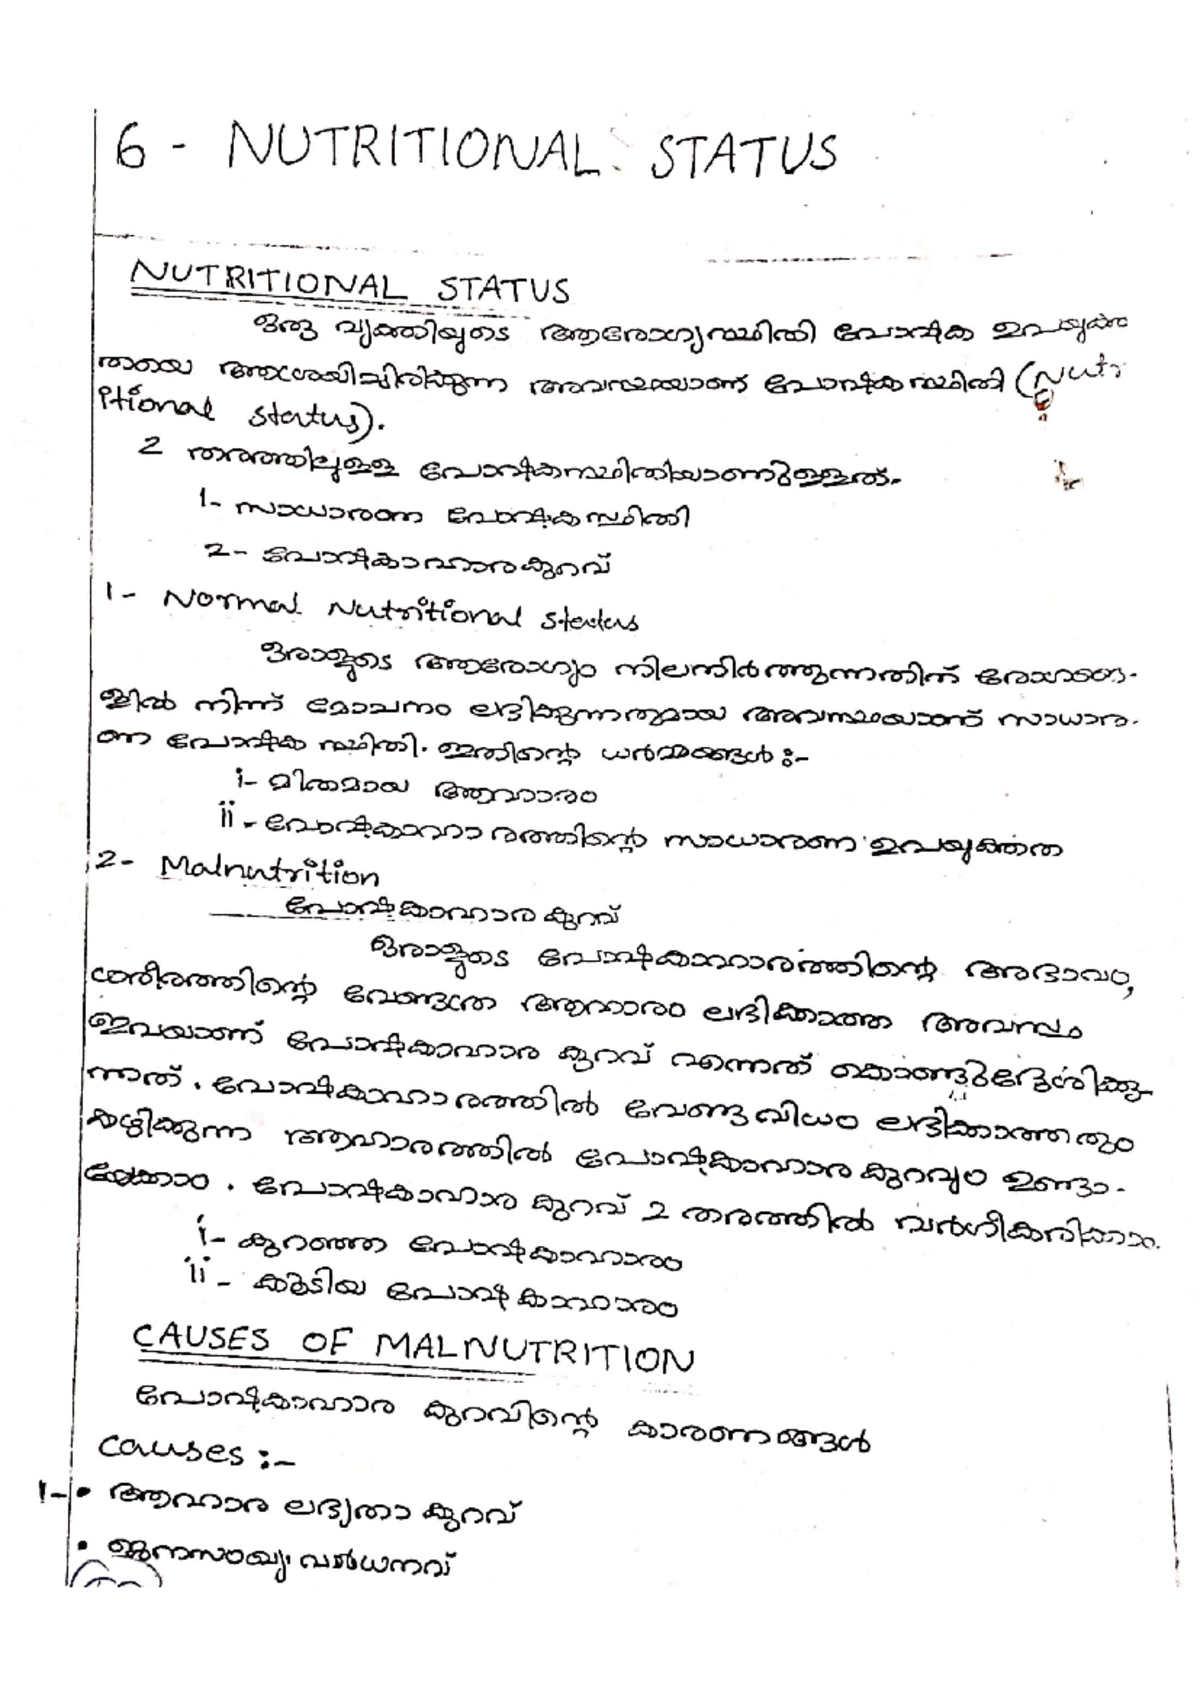 6 - NUTRITIONAL STATUS
NUTRITIONAL STATUS
ഒരു വ്യക്തിയുടെ ആരോഗ്യസ്ഥിതി പോഷക ഉപയുക്ത
തയെ ആശ്രയിച്ചിരിക്കുന്ന അവസ്ഥയാണ് പോഷകസ്ഥിതി (Nutri
tional status).
2 തരത്തിലുള്ള പോഷകസ്ഥിതിയാണുള്ളത്.
1- സാധാരണ പോഷകസ്ഥിതി
2- പോഷകാഹാരകുറവ്
1- Normal Nutritional Status
ഒരാളുടെ ആരോഗ്യം നിലനിർത്തുന്നതിന് രോഗങ്ങ-
ളിൽ നിന്ന് മോചനം ലഭിക്കുന്നതുമായ അവസ്ഥയാണ് സാധാര-
ണ പോഷക സ്ഥിതി. ഇതിന്റെ ധർമ്മങ്ങൾ :-
i- മിതമായ ആഹാരം
ii- പോഷകാഹാരത്തിന്റെ സാധാരണ ഉപയുക്തത
2- Malnutrition
പോഷകാഹാര കുറവ്
ഒരാളുടെ പോഷകാഹാരത്തിന്റെ അഭാവം,
ശരീരത്തിന്റെ വേണ്ടത്ര ആഹാരം ലഭിക്കാത്ത അവസ്ഥ
ഇവയാണ് പോഷകാഹാര കുറവ് എന്നത് കൊണ്ടുദ്ദേശിക്കു-
ന്നത്. പോഷകാഹാരത്തിൽ വേണ്ടവിധം ലഭിക്കാത്തതും
കഴിക്കുന്ന ആഹാരത്തിൽ പോഷകാഹാര കുറവും ഉണ്ടാ-
യേക്കാം. പോഷകാഹാര കുറവ് 2 തരത്തിൽ വർഗീകരിക്കാം.
i- കുറഞ്ഞ പോഷകാഹാരം
ii- കൂടിയ പോഷകാഹാരം
CAUSES OF MALNUTRITION
പോഷകാഹാര കുറവിന്റെ കാരണങ്ങൾ
Causes :-
1- • ആഹാര ലഭ്യതാ കുറവ്
• ജനസംഖ്യ വർധനവ്